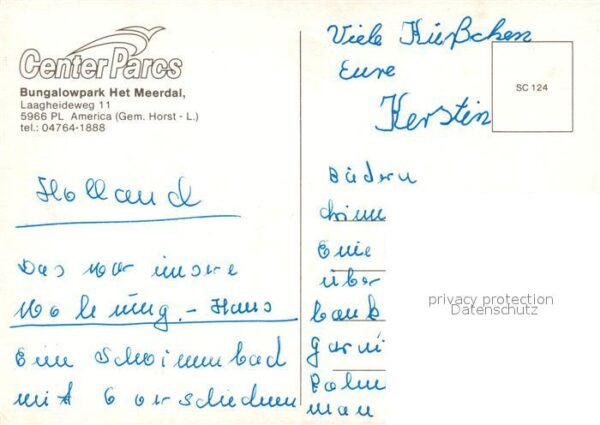 Center Parcs
Bungalowpark Het Meerdal,
Laagheideweg 11
5966 PL America (Gem. Horst - L.)
tel.: 04764-1888
Holland
Das war unsere
Wohnung. - Haus
Ein Schwimmbad
mit 6 verschiedenen
Viele Küßchen
Eure
Kerstin
SC 124
Bädern
Eine
über
bank
garni
Palm
man
privacy protection
Datenschutz